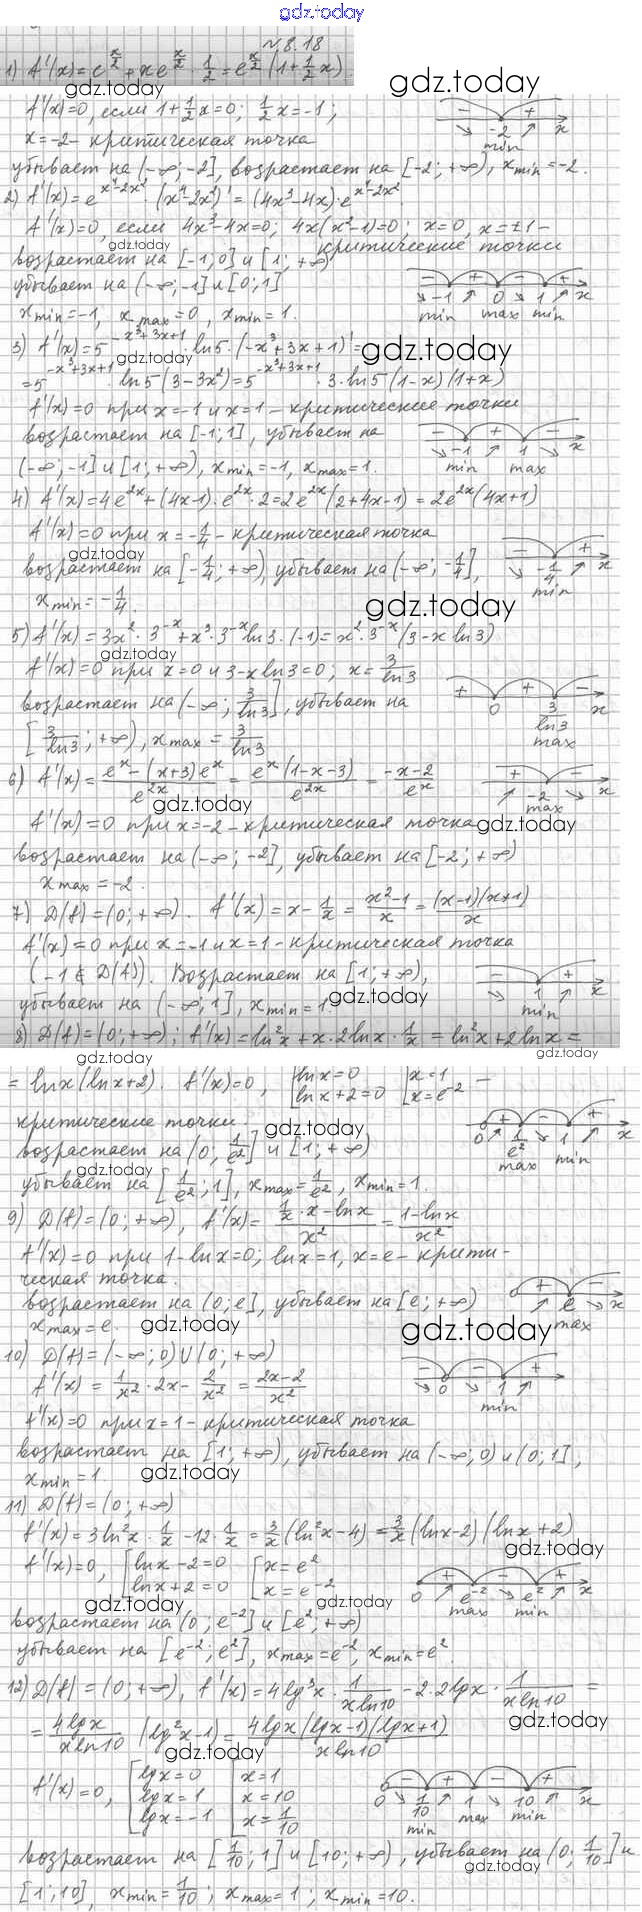 gdz.today
№8.18
1) f'(x)=e^{x/2}+xe^{x/2}·1/2=e^{x/2}(1+1/2x).
gdz.today gdz.today
f'(x)=0, если 1+1/2x=0; 1/2x=-1;
- + -2 min x
x=-2- критическая точка
убывает на (-∞;-2], возрастает на [-2;+∞), x min=-2.
2) f'(x)=e^{x⁴-2x²}·(x⁴-2x²)'=(4x³-4x)·e^{x⁴-2x²}.
f'(x)=0, если 4x³-4x=0; 4x(x²-1)=0; x=0, x=±1-
gdz.today критические точки
возрастает на [-1;0] и [1;+∞)
убывает на (-∞;-1] и [0;1]
- + - + -1 0 1 x min max min
x min=-1, x max=0, x min=1.
3) f'(x)=5^{-x³+3x+1}·ln5·(-x³+3x+1)'=
gdz.today gdz.today
=5^{-x³+3x+1}·ln5(3-3x²)=5^{-x³+3x+1}·3·ln5(1-x)(1+x)
f'(x)=0 при x=-1 и x=1 - критические точки
возрастает на [-1;1], убывает на
- + - -1 1 x min max
(-∞;-1] и [1;+∞), x min=-1, x max=1.
4) f'(x)=4e^{2x}+(4x-1)·e^{2x}·2=2e^{2x}(2+4x-1)=2e^{2x}(4x+1)
f'(x)=0 при x=-1/4 - критическая точка
gdz.today
возрастает на [-1/4;+∞), убывает на (-∞;-1/4],
- + -1/4 x min
x min=-1/4.
gdz.today
5) f'(x)=3x²·3^{-x}+x³·3^{-x}ln3·(-1)=x²·3^{-x}(3-x ln3)
gdz.today
f'(x)=0 при x=0 и 3-xln3=0; x=3/ln3
возрастает на (-∞;3/ln3], убывает на
+ + - 0 3/ln3 x max
[3/ln3;+∞), x max=3/ln3
6) f'(x)=(e^x-(x+3)e^x)/e^{2x}=e^x(1-x-3)/e^{2x}=(-x-2)/e^x
+ - -2 x max
gdz.today
f'(x)=0 при x=-2 - критическая точка
gdz.today
возрастает на (-∞;-2], убывает на [-2;+∞)
x max=-2.
gdz.today
7) D(f)=(0;+∞). f'(x)=x-1/x=(x²-1)/x=(x-1)(x+1)/x
f'(x)=0 при x=-1 и x=1 - критическая точка
(-1∉D(f)). Возрастает на [1;+∞),
- + 1 x min
убывает на (-∞;1], x min=1.
gdz.today
8) D(f)=(0;+∞); f'(x)=ln²x+x·2lnx·1/x=ln²x+2lnx=
gdz.today gdz.today
=lnx(lnx+2). f'(x)=0, [lnx=0 lnx+2=0 [x=1 x=e^{-2} -
критические точки
gdz.today
возрастает на (0;1/e²] и [1;+∞)
+ - + 0 1/e² 1 x max min
gdz.today
убывает на [1/e²;1], x max=1/e², x min=1.
9) D(f)=(0;+∞), f'(x)=(1/x·x-lnx)/x²=(1-lnx)/x²
f'(x)=0 при 1-lnx=0; lnx=1, x=e - крити-
ческая точка.
возрастает на (0;e], убывает на [e;+∞)
+ - e x max
x max=e.
gdz.today gdz.today
10) D(f)=(-∞;0)∪(0;+∞)
f'(x)=1/x²·2x-2/x²=(2x-2)/x²
- - + 0 1 x min
f'(x)=0 при x=1 - критическая точка
возрастает на [1;+∞), убывает на (-∞;0) и (0;1],
x min=1.
gdz.today
11) D(f)=(0;+∞)
f'(x)=3ln²x·1/x-12·1/x=3/x(ln²x-4)=3/x(lnx-2)(lnx+2)
gdz.today
f'(x)=0, [lnx-2=0 lnx+2=0 [x=e² x=e^{-2}
+ - + 0 e^{-2} e² x max min
gdz.today gdz.today
возрастает на (0;e^{-2}] и [e²;+∞)
убывает на [e^{-2};e²], x max=e^{-2}, x min=e².
12) D(f)=(0;+∞), f'(x)=4lg³x·1/(xln10)-2·2lgx·1/(xln10)=
gdz.today
=4lgx/(xln10)(lg²x-1)=4lgx(lgx-1)(lgx+1)/(xln10)
gdz.today
f'(x)=0, [lgx=0 lgx=1 lgx=-1 [x=1 x=10 x=1/10
- + - + 0 1/10 1 10 x min max min
возрастает на [1/10;1] и [10;+∞), убывает на (0;1/10] и
gdz.today
[1;10], x min=1/10; x max=1; x min=10.